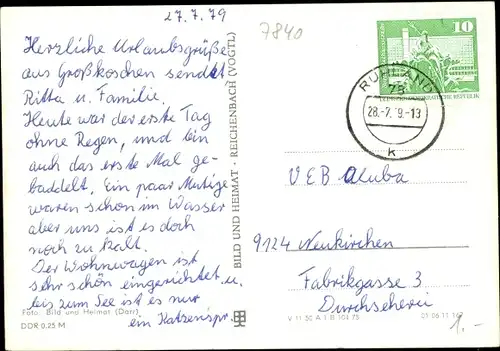 27.7.79
7840
Herzliche Urlaubsgrüße
aus Großkoschen sendet
Ritta u. Familie.
Heute war der erste Tag
ohne Regen, und bin
auch das erste Mal ge-
baddelt. Ein paar Mutige
waren schon im Wasser
aber uns ist es doch
noch zu kalt.
Der Wohnwagen ist
sehr schön eingerichtet u.
bis zum See ist es nur
ein Katzenspr.
Foto: Bild und Heimat (Darr)
DDR 0,25 M
BILD UND HEIMAT · REICHENBACH (VOGTL)
10
RUHLAND
78
28.-7.79.-13
k
VEB Aluba
9124 Neukirchen
Fabrikgasse 3
Durchseherei
V 11 50 A 1 B 104 75
01 06 11
1.-